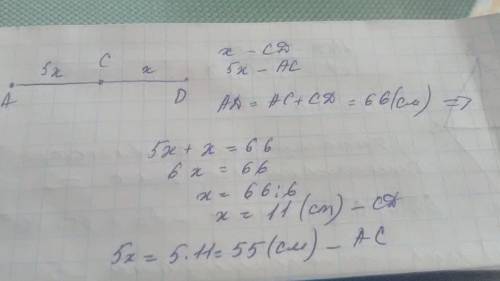 5x C x
A D
x – CD
5x – AC
AD = AC + CD = 66 (см) =>
5x + x = 66
6x = 66
x = 66 : 6
x = 11 (см) – CD
5x = 5 · 11 = 55 (см) – AC